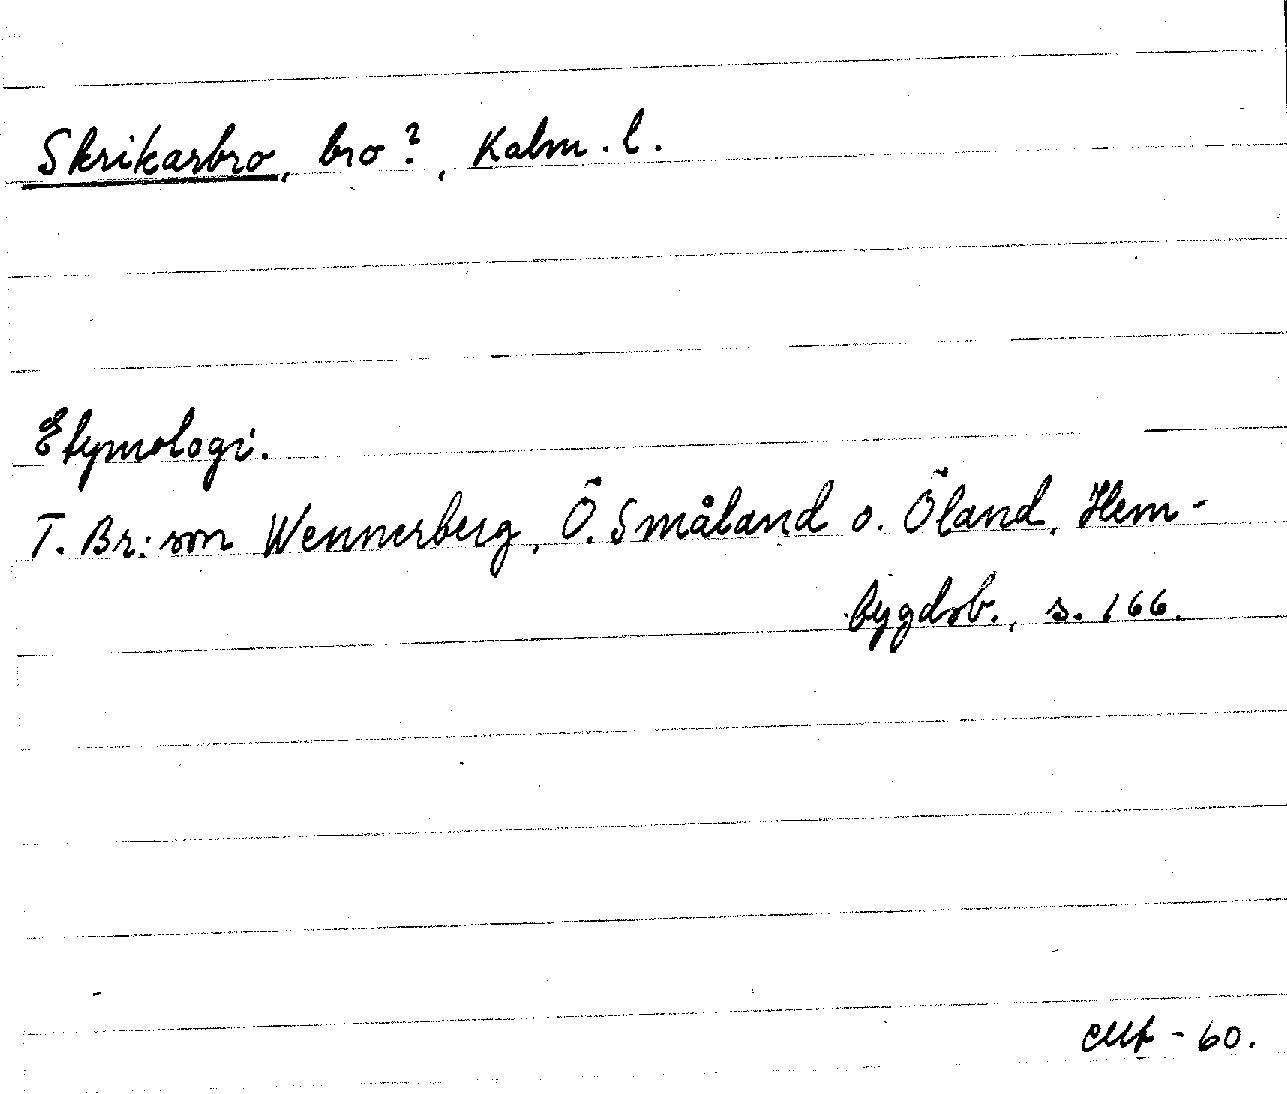 Skrikarbro, bro?, Kalm. l.
Etymologi.
T. Br:son Wennerberg, Ö. Småland o. Öland, Hem-
bygdsb., s. 166.
-60.